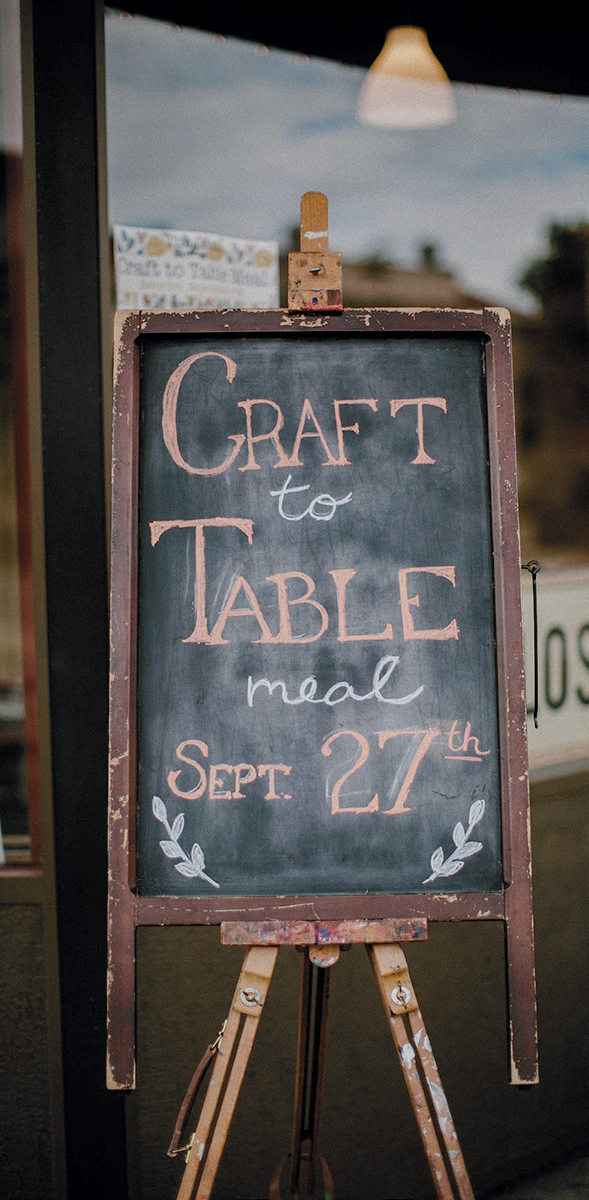 Craft to Table Meal
CRAFT
to
TABLE
meal
SEPT. 27th
LOS